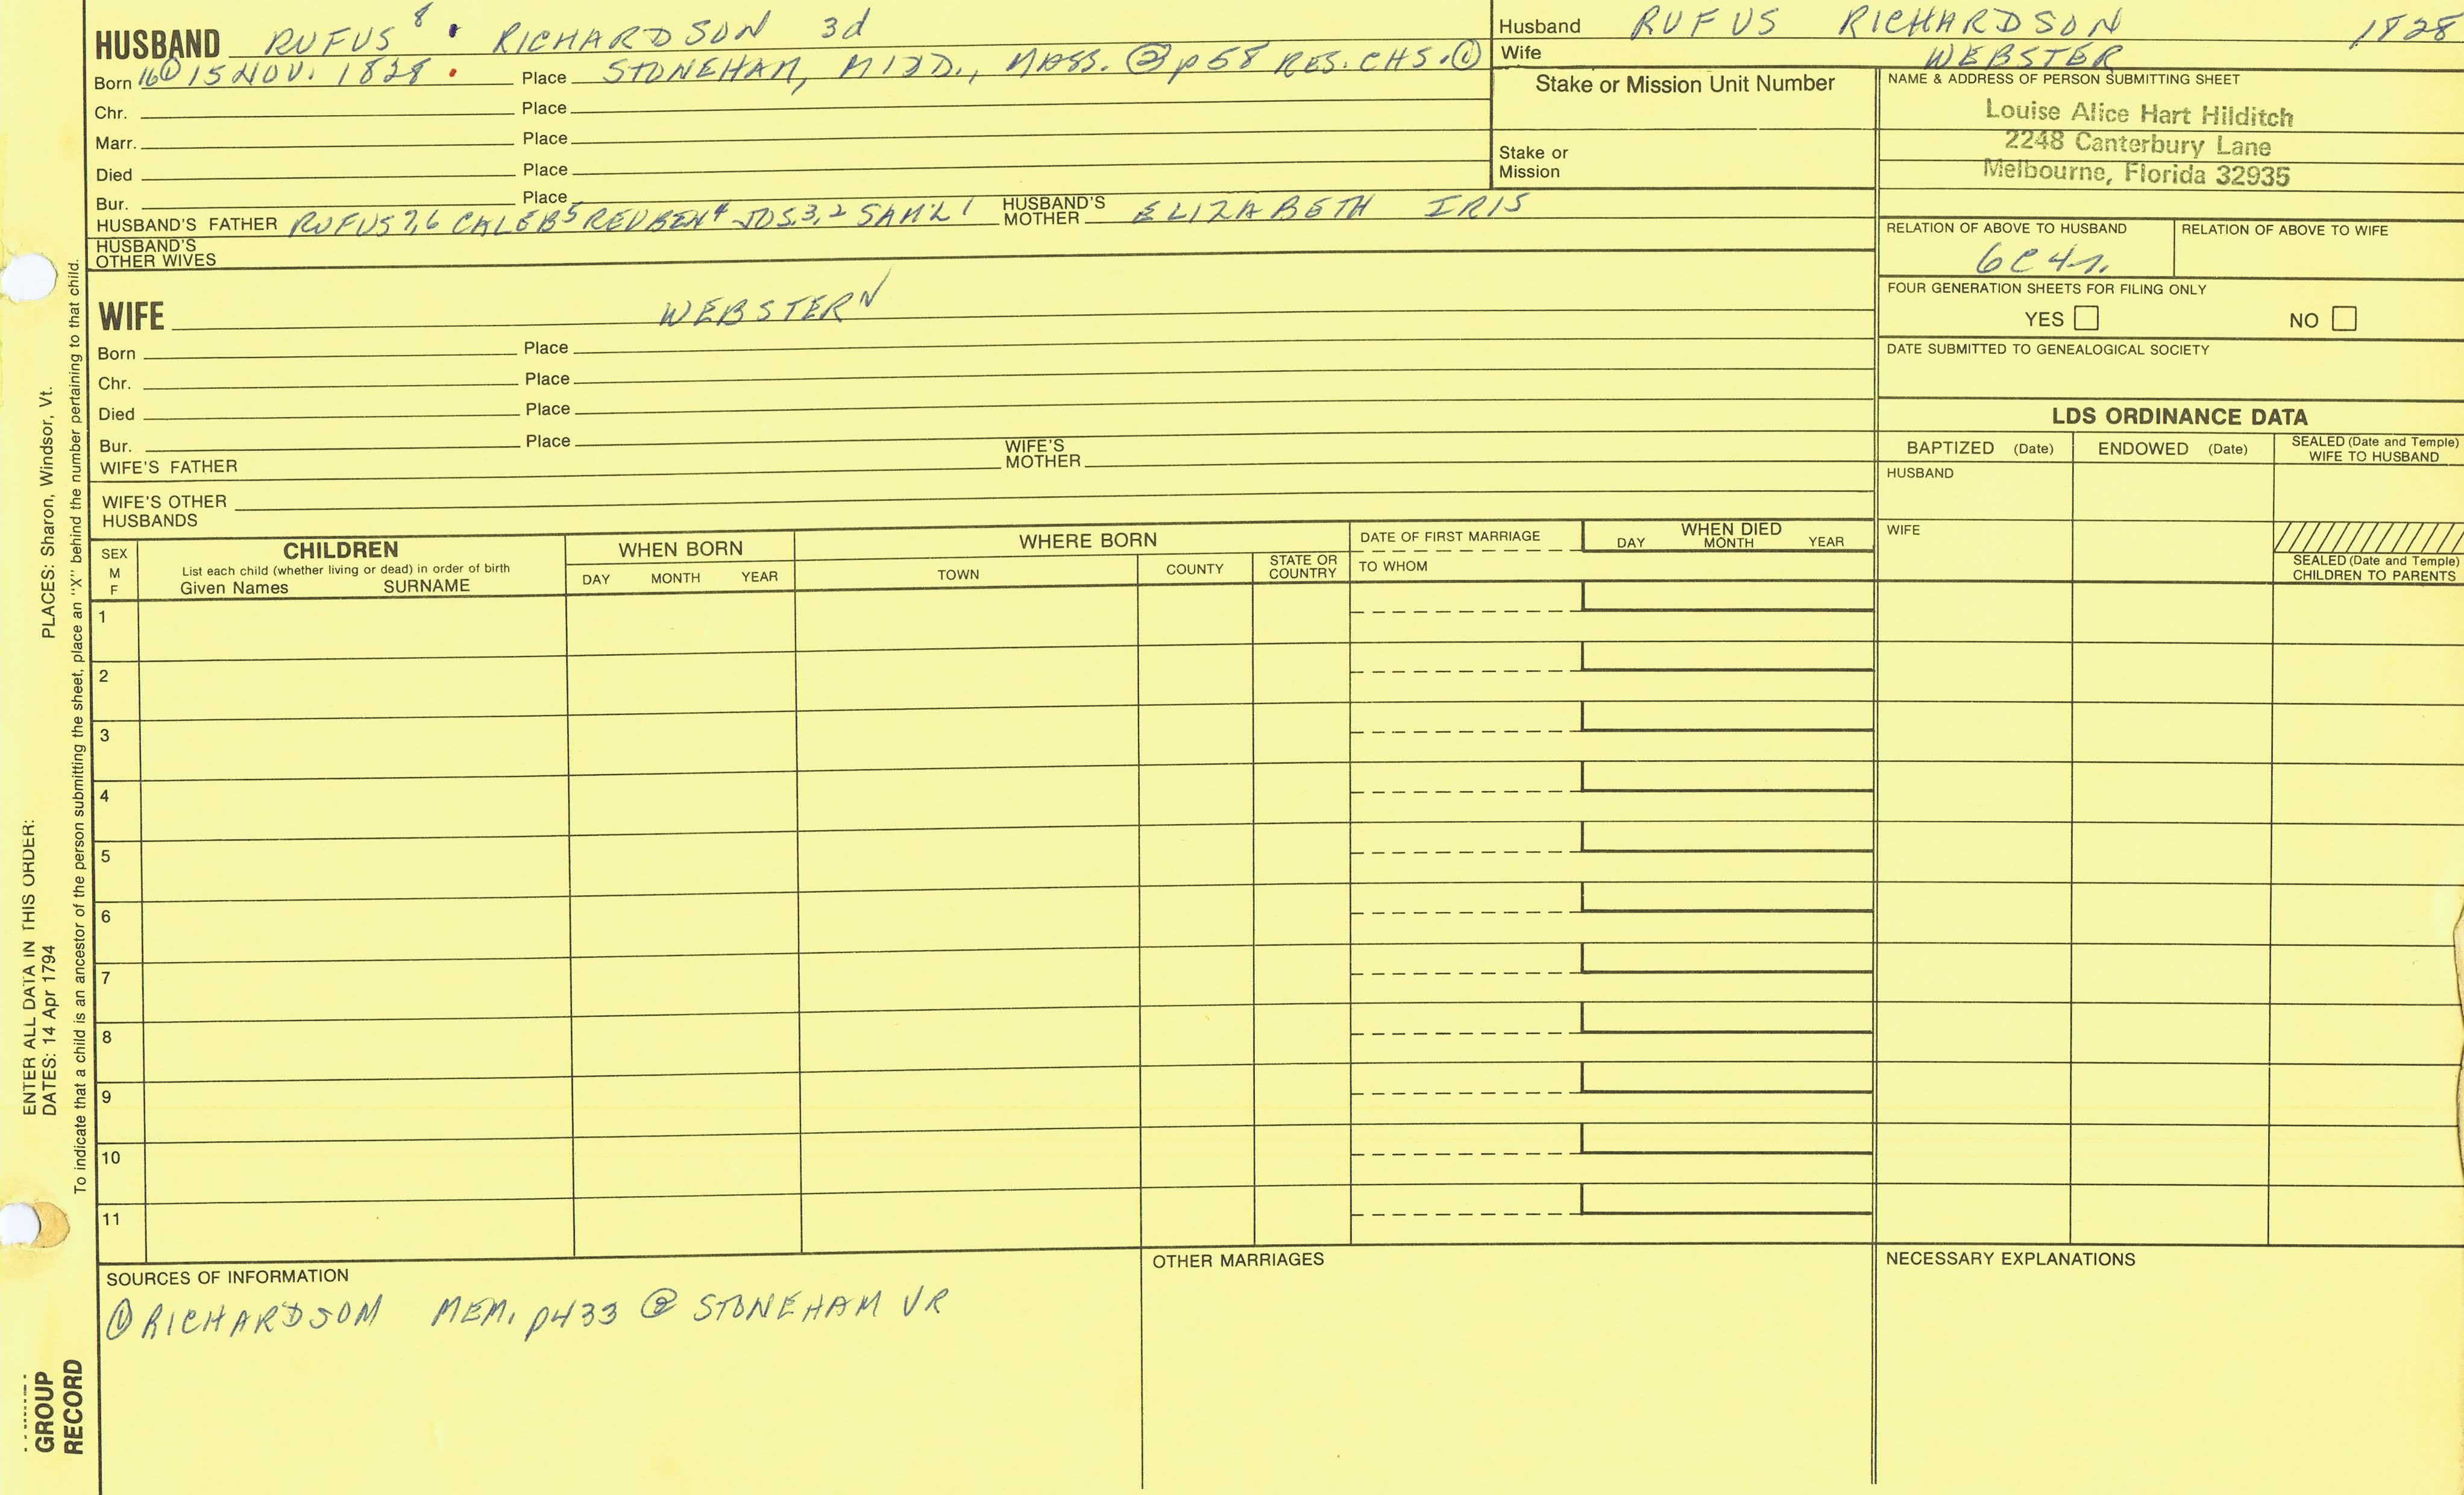 HUSBAND RUFUS 8 RICHARDSON 3d
Born 16① 15 NOV. 1828 Place STONEHAM, MIDD., MASS. ② p58 RES. CHS. ①
Chr. Place
Marr. Place
Died Place
Bur. Place
HUSBAND'S FATHER RUFUS 7,6 CALEB 5 REUBEN 4 JOS. 3,2 SAM'L 1 HUSBAND'S MOTHER ELIZABETH IRIS
HUSBAND'S
OTHER WIVES
Husband RUFUS RICHARDSON 1828
Wife WEBSTER
Stake or Mission Unit Number
Stake or
Mission
NAME & ADDRESS OF PERSON SUBMITTING SHEET
Louise Alice Hart Hilditch
2248 Canterbury Lane
Melbourne, Florida 32935
RELATION OF ABOVE TO HUSBAND RELATION OF ABOVE TO WIFE
6C4r.
FOUR GENERATION SHEETS FOR FILING ONLY
YES NO
DATE SUBMITTED TO GENEALOGICAL SOCIETY
WIFE WEBSTERN
Born Place
Chr. Place
Died Place
Bur. Place
WIFE'S FATHER WIFE'S MOTHER
WIFE'S OTHER
HUSBANDS
LDS ORDINANCE DATA
BAPTIZED (Date) ENDOWED (Date) SEALED (Date and Temple) WIFE TO HUSBAND
HUSBAND
WIFE
SEALED (Date and Temple)
CHILDREN TO PARENTS
SEX
M
F
CHILDREN
List each child (whether living or dead) in order of birth
Given Names SURNAME
WHEN BORN
DAY MONTH YEAR
WHERE BORN
TOWN COUNTY STATE OR COUNTRY
DATE OF FIRST MARRIAGE
TO WHOM
WHEN DIED
DAY MONTH YEAR
1
2
3
4
5
6
7
8
9
10
11
SOURCES OF INFORMATION
① RICHARDSOM MEM. p433 ② STONEHAM VR
OTHER MARRIAGES
NECESSARY EXPLANATIONS
ENTER ALL DATA IN THIS ORDER:
DATES: 14 Apr 1794 PLACES: Sharon, Windsor, Vt.
To indicate that a child is an ancestor of the person submitting the sheet, place an "X" behind the number pertaining to that child.
GROUP
RECORD